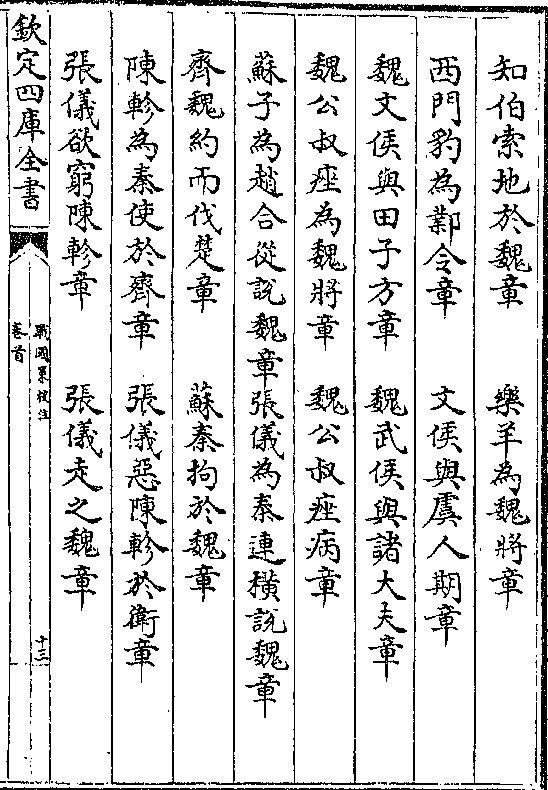 知伯索地於魏章　樂羊為魏將章
西門豹為鄴令章　文侯與虞人期章
魏文侯與田子方章　魏武侯與諸大夫章
魏公叔痤為魏將章　魏公叔痤病章
蘇子為趙合從說魏章　張儀為秦連橫說魏章
齊魏約而伐楚章　蘇秦拘於魏章
陳軫為秦使於齊章　張儀惡陳軫於衛章
張儀欲窮陳軫章　張儀走之魏章
欽定四庫全書
戰國策校注
卷首
十三